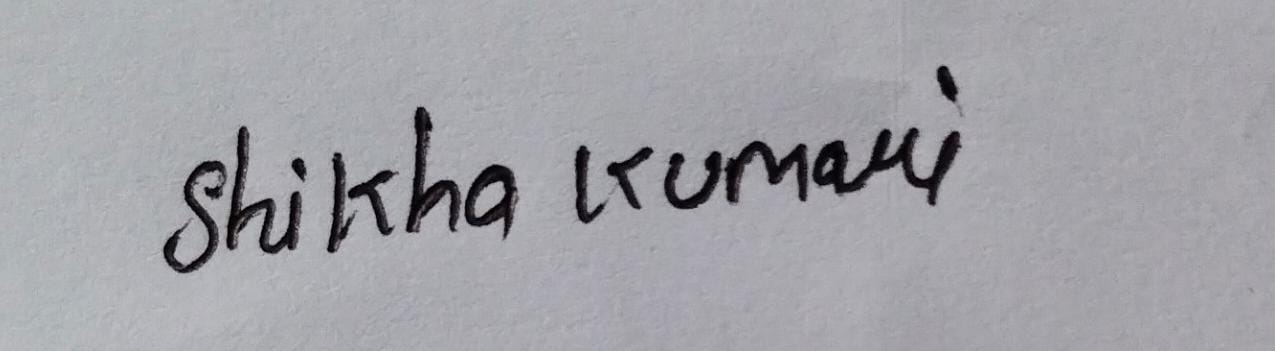 Shikha Kumari